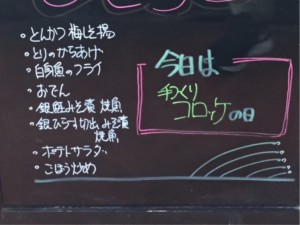 ・とんかつ 梅しそ揚
・とりのからあげ
・白身魚のフライ
・おでん
・銀鮭みそ漬 焼魚
・銀ひらす切出みそ漬
焼魚
・ポテトサラダ
・ごぼう炒め
今日は
手づくり
コロッケの日